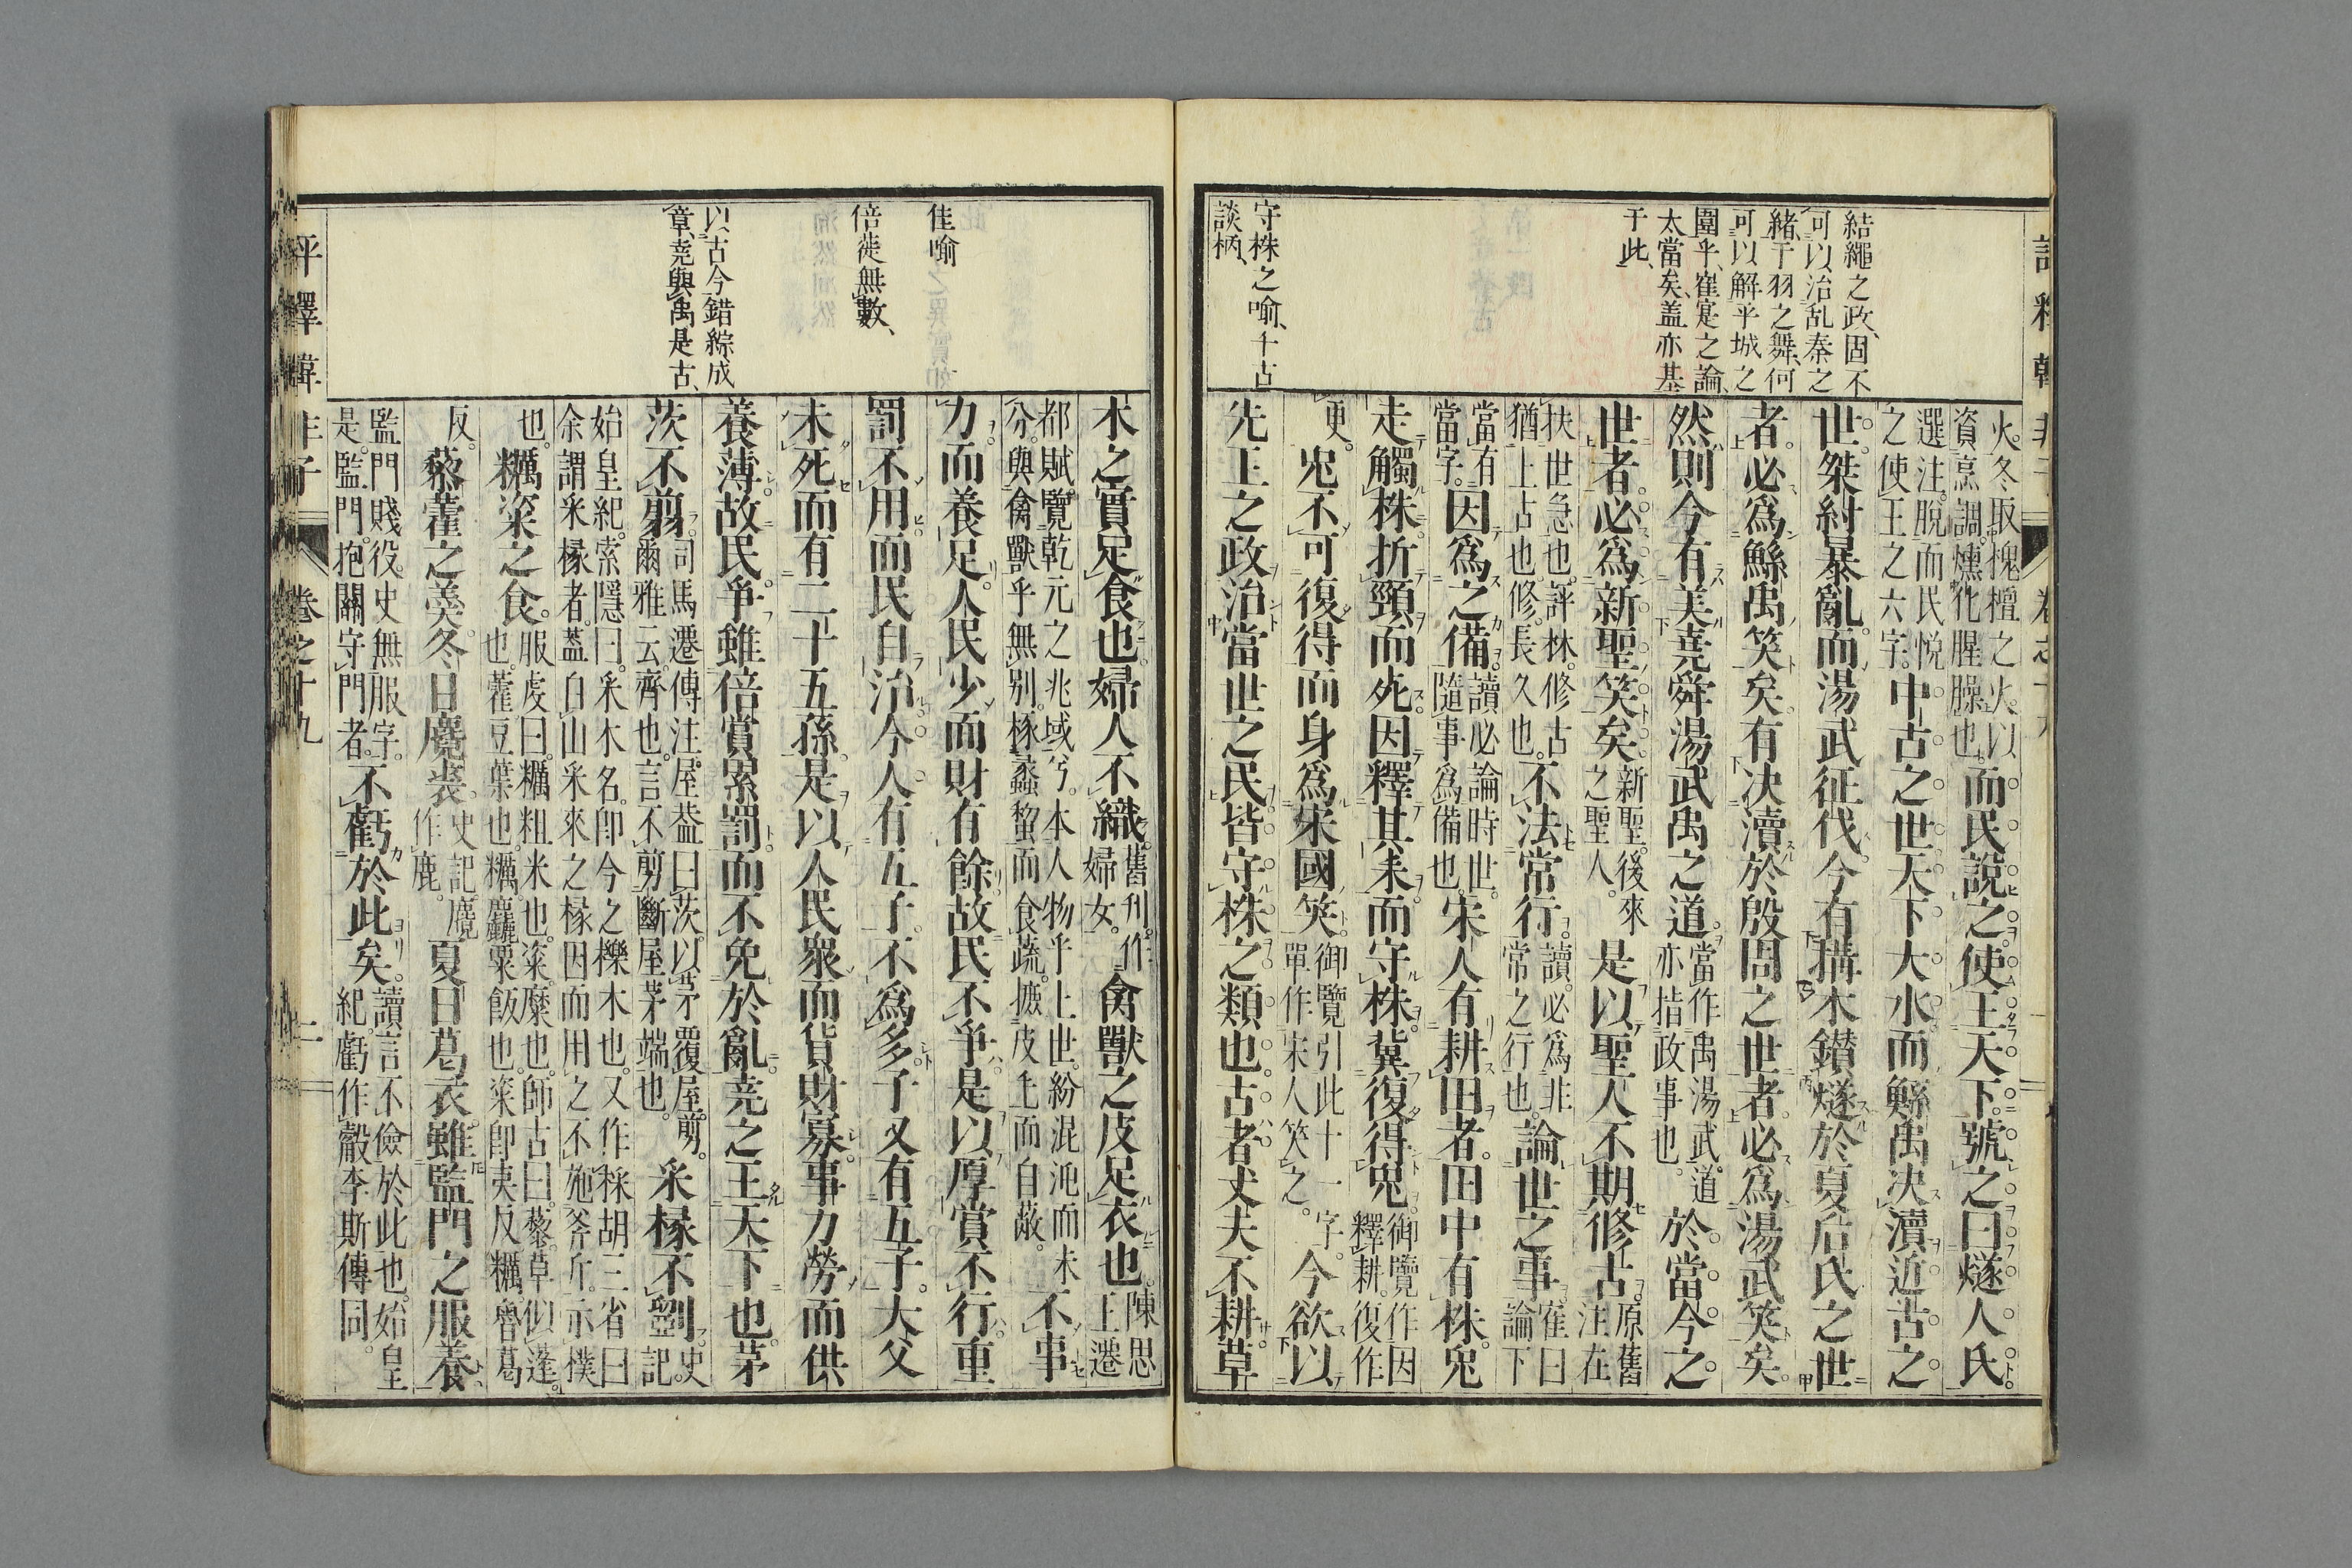 結繩之政、固不
可以治乱秦之
緒、干羽之舞、何
可以解平城之
圍乎、崔寔之論、
太當矣、盖亦基
于此、
守株之喻、千古
談柄、
火。冬取槐檀之火。以
資烹調。燻化腥臊也。
而民說之使王天下。號之曰燧人氏
選注。脫而民悅
之使王之六字。
中古之世天下大水而鯀禹决瀆近古之
世。桀紂暴亂而湯武征伐今有搆木鑚燧於夏后氏之世
者。必爲鯀禹笑矣有决瀆於殷周之世者必爲湯武笑矣
然則今有美堯舜湯武禹之道
當作禹湯武。道
亦指政事也。
於當今之
世者必爲新聖笑矣
新聖。後來
之聖人。
是以聖人不期修古
原舊
注在
扶世急也。評林。修古
猶上古也。修。長久也。
不法常行
讀必爲非
常之行也。
論世之事
崔曰
論下
當有
當字。
因爲之備
讀必論時世。
隨事爲備也。
宋人有耕田者田中有株兎
走觸株折頸而死因釋其耒而守株冀復得兎
御覽作因
釋耕。復作
更。
兎不可復得而身爲宋國笑
御覽引此十一字。
單作宋人笑之。
今欲以
先王之政治當世之民皆守株之類也古者丈夫不耕草
佳喻
倍蓰無數、
以古今錯綜成
章、堯與禹是古、
木之實足食也婦人不織
舊刊。作
婦女。
禽獸之皮足衣也
陳思
王遷
都賦。覽乾元之兆域兮。本人物乎上世。紛混沌而未
分。與禽獸乎無別。椓蠡蜇而食蔬。摭皮毛而自蔽。
不事
力而養足人民少而財有餘故民不爭是以厚賞不行重
罰不用而民自治今人有五子不爲多子又有五子。大父
未死而有二十五孫是以人民衆而貨財寡事力勞而供
養薄故民爭雖倍賞累罰而不免於亂堯之王天下也茅
茨不翦
司馬遷傳注。屋葢曰茨。以茅覆屋。翦。
爾雅云。齊也。言不剪斷屋茅端也。
采椽不斲
史
記。
始皇紀。索隱曰。采木名。卽今之櫟木也。又作採胡三省曰
余謂采椽者。葢自山采來之椽因而用之不施斧斤。示樸
也。
糲粢之食
服虔曰。糲粗米也。粢。糜也。師古曰。藜。草似蓬。
也。藿豆葉也。糲。麤粟飯也。粢卽夷反糲。魯葛
反。
藜藿之羹冬日麑裘
史記。麑
作鹿。
夏日葛衣雖監門之服養
監門賤役。史無服字。
是。監門。抱關守門者。
不虧於此矣
讀言不儉於此也。始皇
紀虧作觳李斯傳同。
評釋韓非子
卷之十九
二